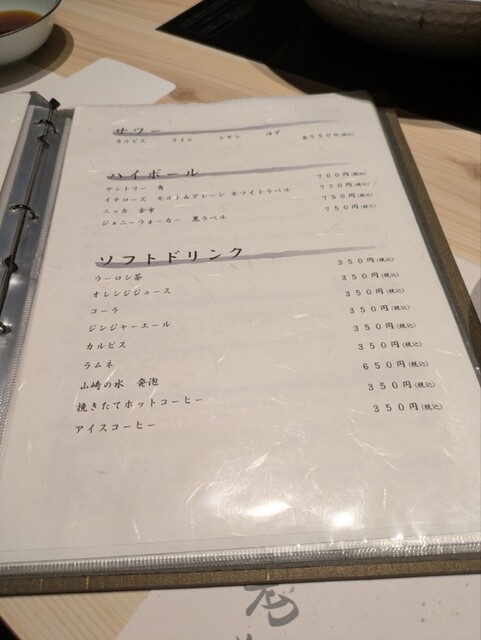 サワー
カルピス ライム レモン ゆず 各550円(税込)
ハイボール
サントリー 角 700円(税込)
イチローズ モルト&グレーン ホワイトラベル 720円(税込)
ニッカ 余市 750円(税込)
ジョニーウォーカー 黒ラベル 750円(税込)
ソフトドリンク
ウーロン茶 350円(税込)
オレンジジュース 350円(税込)
コーラ 350円(税込)
ジンジャーエール 350円(税込)
カルピス 350円(税込)
ラムネ 350円(税込)
山崎の水 発泡 650円(税込)
挽きたてホットコーヒー 350円(税込)
アイスコーヒー 350円(税込)